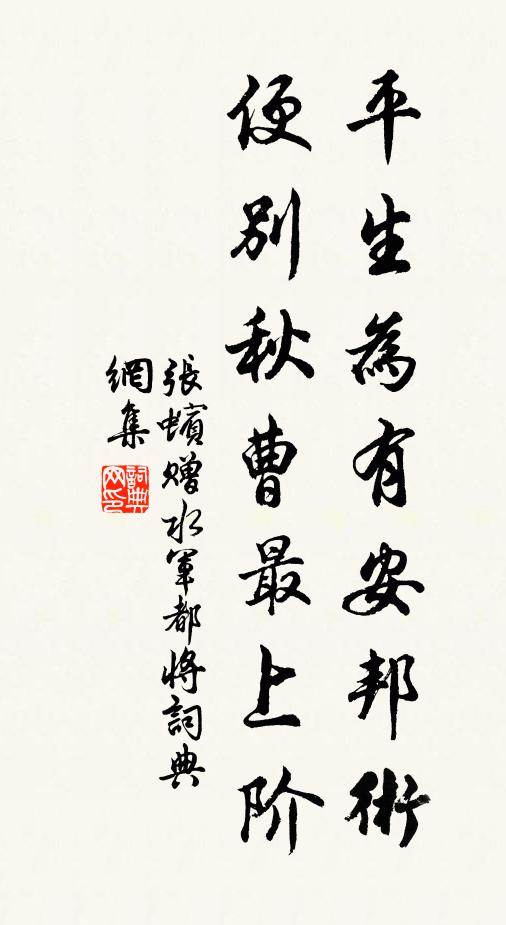 平生為有安邦術
便別秋曹最上阶
張蠙赠水軍都将詞典
網集
詞典網印